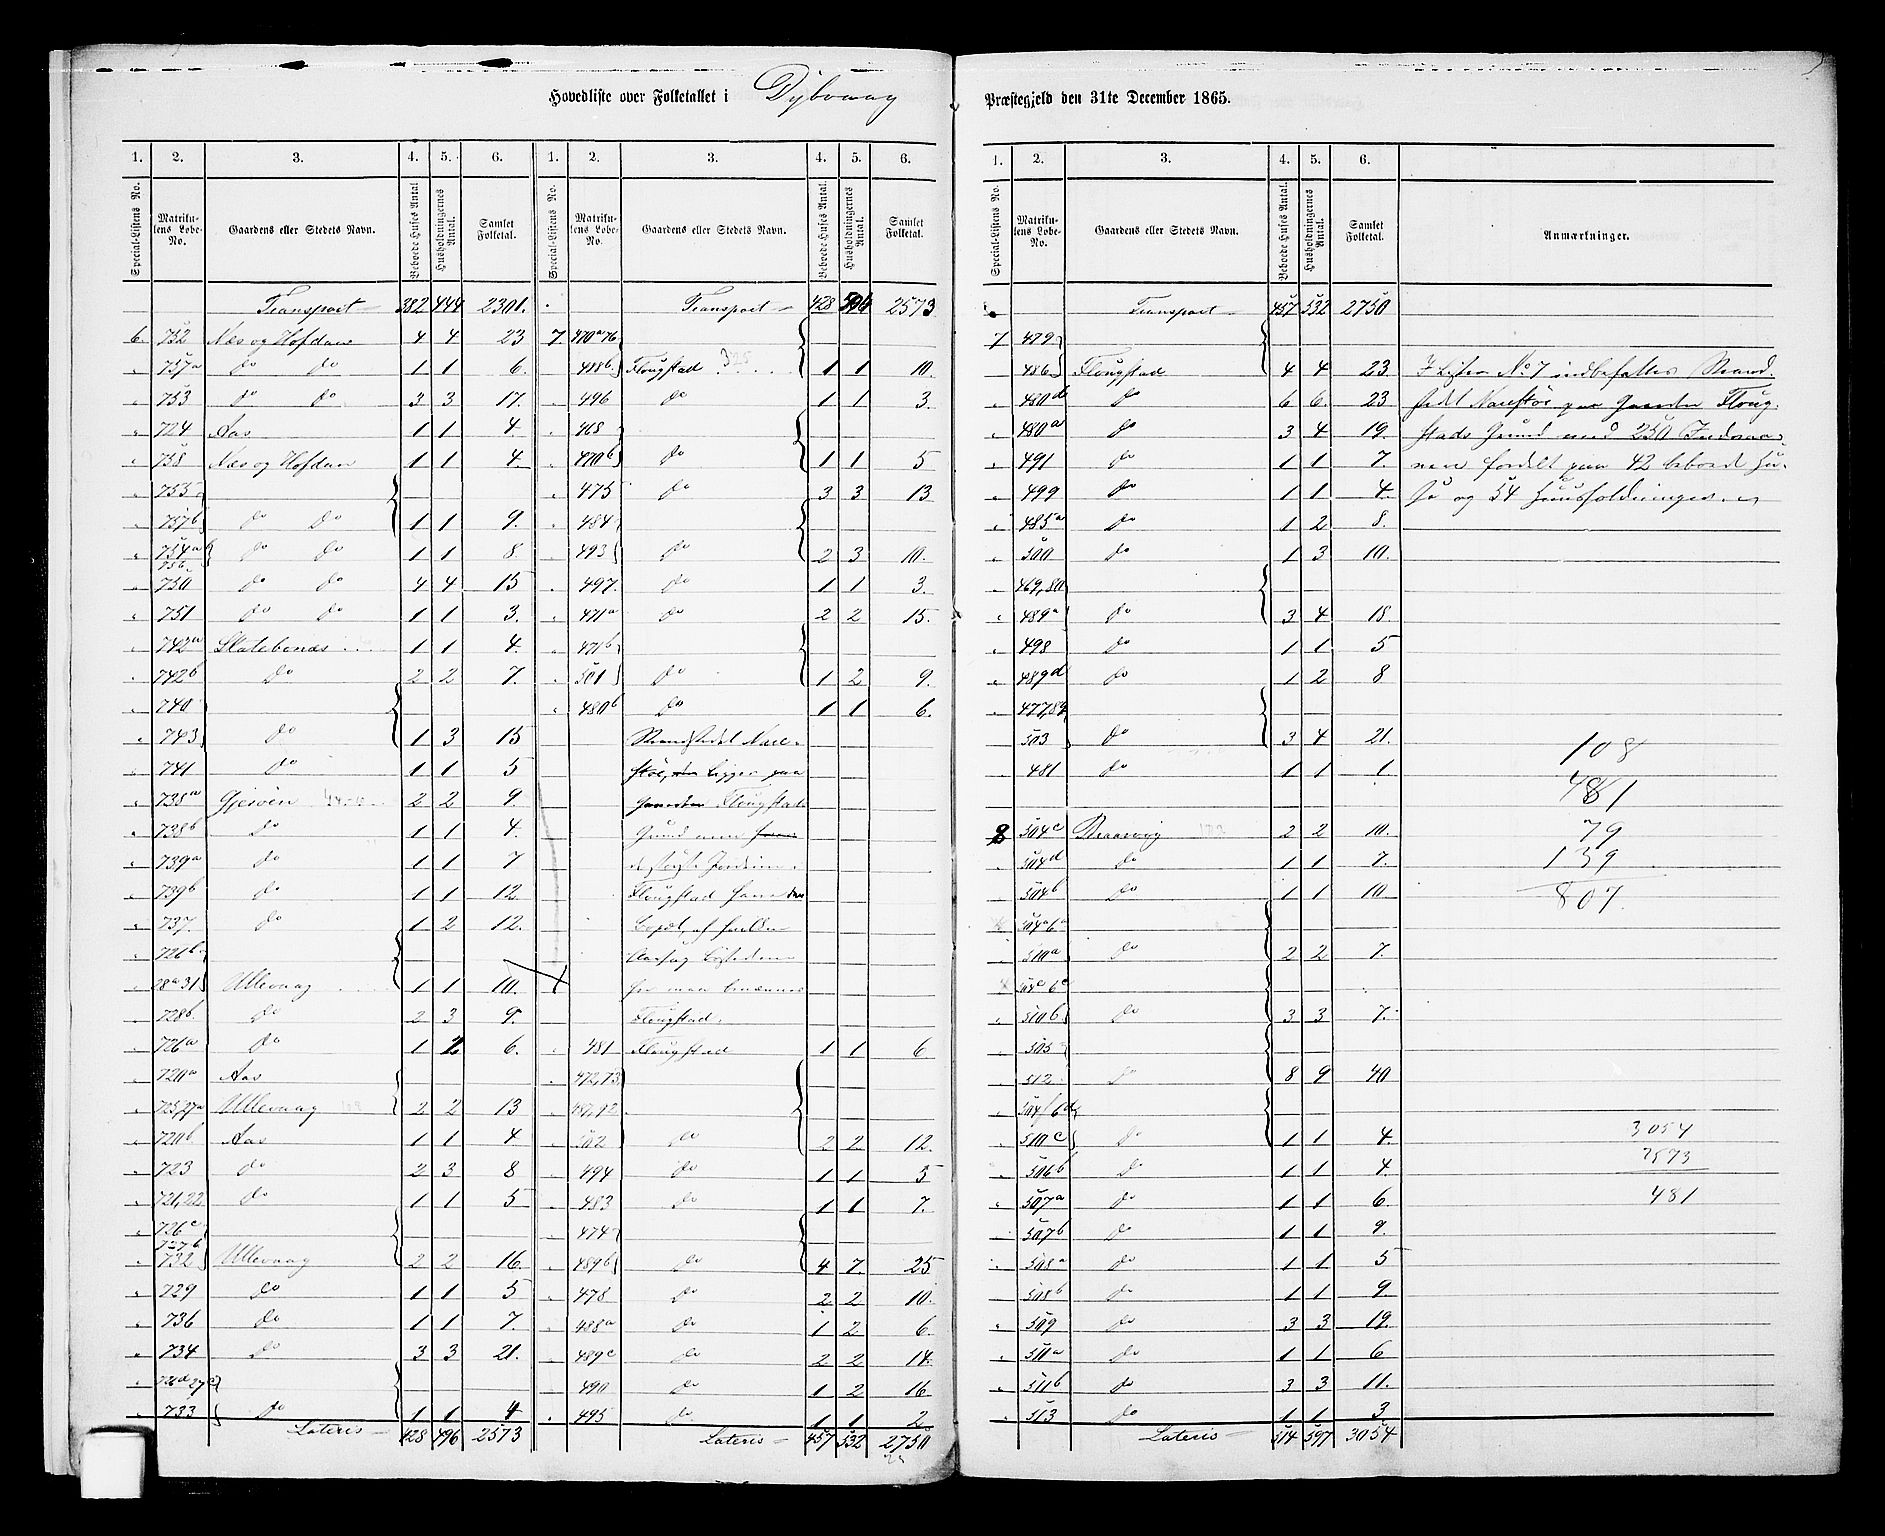 Hovedliste over Folketallet i Dybvaag Præstegjeld den 31te December 1865.
1. 2. 3. 4. 5. 6. 1. 2. 3. 4. 5. 6.
Special-Listens No. Matrikulens Løbe-No. Gaardens eller Stedets Navn. Beboede Huses Antal. Husholdningernes Antal. Samlet Folketal. Special-Listens No. Matrikulens Løbe-No. Gaardens eller Stedets Navn. Beboede Huses Antal. Husholdningernes Antal. Samlet Folketal.
Transport 382 444 2301. Transport 428 496 2573
6. 752 Næs og Hofdan 4 4 23 7. 470a 76
757a do do 1 1 6. 488b Flougstad 1 1 10.
753 do do 3 3 17. 496 do 1 1 3.
724 Aas 1 1 4. 468
758 Næs og Hofdan 1 1 4. 470b do 1 1 5
755 475 do 3 3 13
757b do do 1 1 9. 484
754a 756 do do 1 1 8. 493 do 2 3 10.
750 do do 4 4 15 497. do 1 1 3.
751 do do 1 1 3. 471a do 2 2 15.
742a 1 1 4. 471b
742b do 2 2 7. 501 do 1 2 9.
740 480b do 1 1 6.
743 do 1 3 15
741 do 1 1 5 ligger paa
738a Gjesøen 2 2 9 Gaarden Flougstads
738b do 1 1 4. Grund
739a do 1 1 7
739b do 1 1 12. Flougstad
737. do 1 2 12.
726b
28a 31 Ullevaag 1 1 10.
728b do 2 3 9. Flougstad.
726a do 1 2 6. 481 Flougstad 1 1 6
720a Aas 472,73
725,27a Ullevaag 2 2 13 487,92
720b Aas 1 1 4 502 do 2 2 12.
723 do 2 3 8 494 do 1 1 5
721,22 do 1 1 5 483 do 1 1 7.
726c 727b 474
732 Ullevaag 2 2 16. 489b do 4 7. 25
729 do 1 1 5 478 do 2 2 10.
736 do 1 1 7. 488a do 1 2 6.
734 do 3 3 21. 489c do 2 2 14.
726d 27c 490 do 1 2 16
733 do 1 1 4 495 do 1 1 2
Lateris 428 496 2573 Lateris 457 532 2750
1. 2. 3. 4. 5. 6.
Special-Listens No. Matrikulens Løbe-No. Gaardens eller Stedets Navn. Beboede Huses Antal. Husholdningernes Antal. Samlet Folketal. Anmærkninger.
Transport 457 532 2750
7 479
486 Flougstad 4 4 23 I Listen No 7 indbefattes Strand
480d do 6 6. 23 stedet Narestøe paa Gaarden Floug
480a do 3 4 19. stads Grund med 250 Indvaa
491 do 1 1 7. nere fordelt paa 42 beboede Hu
499 do 1 1 4. se og 54 Huusholdninger.
485a do 1 2 8.
500 do 1 3 10.
469,80
489a do 3 4 18.
498 do 1 1 5
489d do 1 2 8
477,82
503 do 3 4 21.
481 do 1 1 1
108
481
8 504c 2 2 10. 79
504d do 1 1 7. 139
504b do 1 1 10. 807.
504a 6a
510a do 2 2 7.
504e 6c
510b do 3 3 7.
505
512 do 8 9 40
504f 6d
510c do 1 1 4. 3054
506b do 1 1 4. 2573
507a do 1 1 6 481
507b do 1 1 9.
508a do 1 1 5
508b do 1 1 9
509 do 3 3 19.
511a do 1 1 6
511b do 3 3 11.
513 do 1 1 3
Lateris 514 597 3054